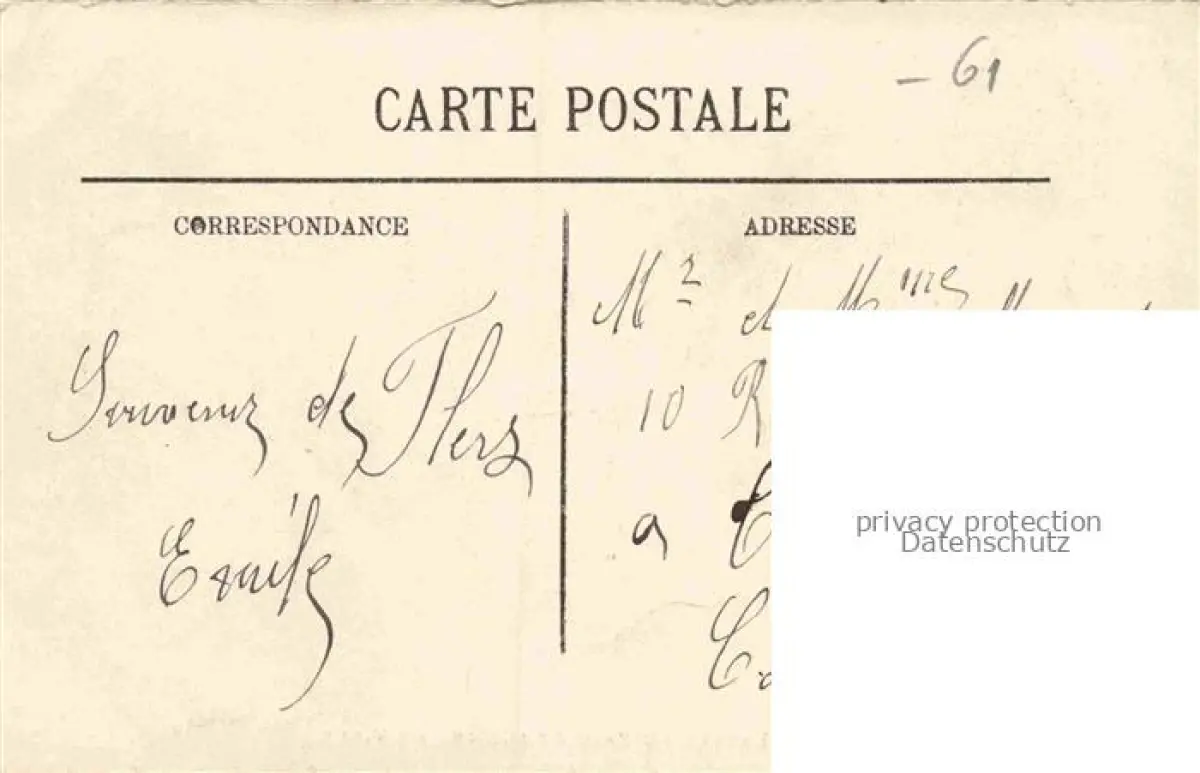 - 61
CARTE POSTALE
CORRESPONDANCE
ADRESSE
Souvenir de Flers
Emile
Mr et Mme
10 R
a
privacy protection
Datenschutz